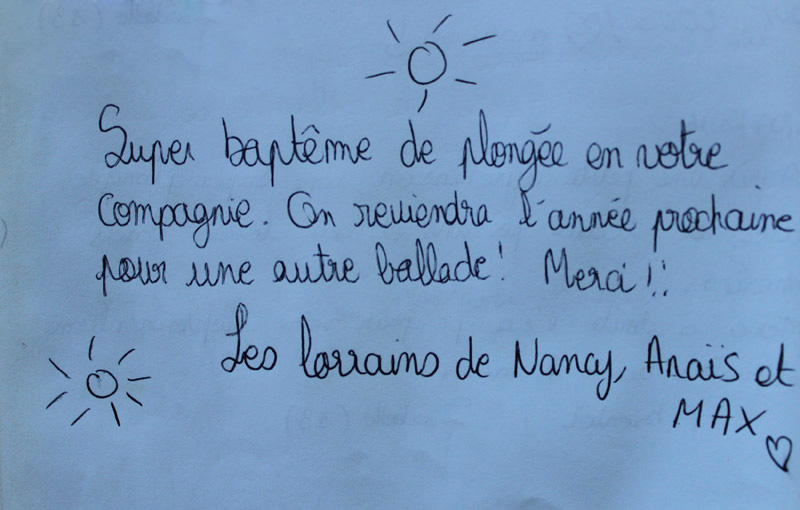 Super baptême de plongée en votre
compagnie. On reviendra l'année prochaine
pour une autre ballade! Merci!!
Les lorrains de Nancy, Anaïs et
MAX